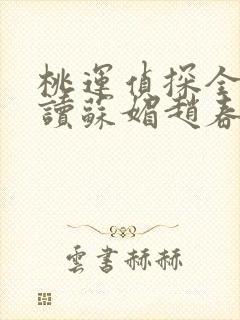 桃運偵探全
讀蘇媚趙春
雲書赫赫